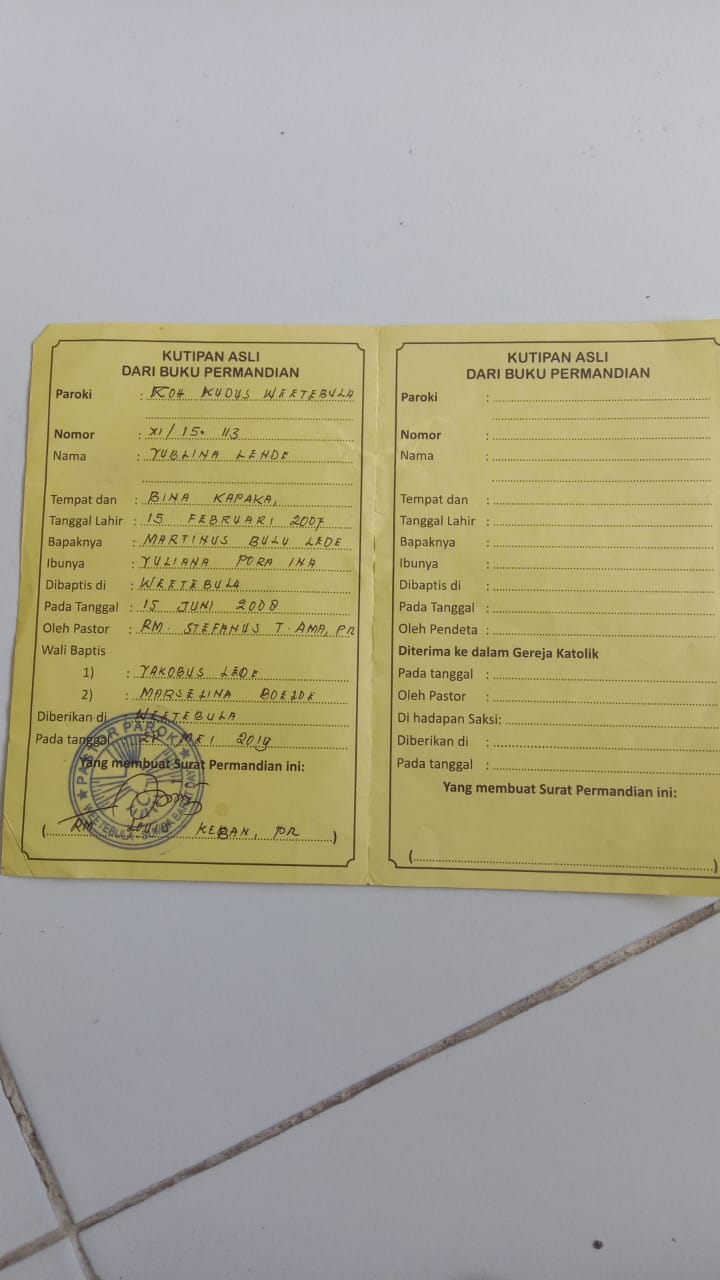 KUTIPAN ASLI
DARI BUKU PERMANDIAN
Paroki : ROH KUDUS WEETEBULA
Nomor : XI / 15. 113
Nama : YUBLINA LENDE
Tempat dan : BINA KAPAKA,
Tanggal Lahir : 15 FEBRUARI 2007
Bapaknya : MARTINUS BULU LEDE
Ibunya : YULIANA PORA INA
Dibaptis di : WEETEBULA
Pada Tanggal : 15 JUNI 2008
Oleh Pastor : RM. STEFANUS T. AMA, PR
Wali Baptis
1) : YAKOBUS LEDE
2) : MARSELINA
Diberikan di : WEETEBULA
Pada tanggal : MEI 2019
Yang membuat Surat Permandian ini:
PASTOR PAROKI
WEETEBULA - SUMBA BARAT DAYA
(RM. LOUIS KEBAN, PR)
KUTIPAN ASLI
DARI BUKU PERMANDIAN
Paroki :
Nomor :
Nama :
Tempat dan :
Tanggal Lahir :
Bapaknya :
Ibunya :
Dibaptis di :
Pada Tanggal :
Oleh Pendeta :
Diterima ke dalam Gereja Katolik
Pada tanggal :
Oleh Pastor :
Di hadapan Saksi:
Diberikan di :
Pada tanggal :
Yang membuat Surat Permandian ini: